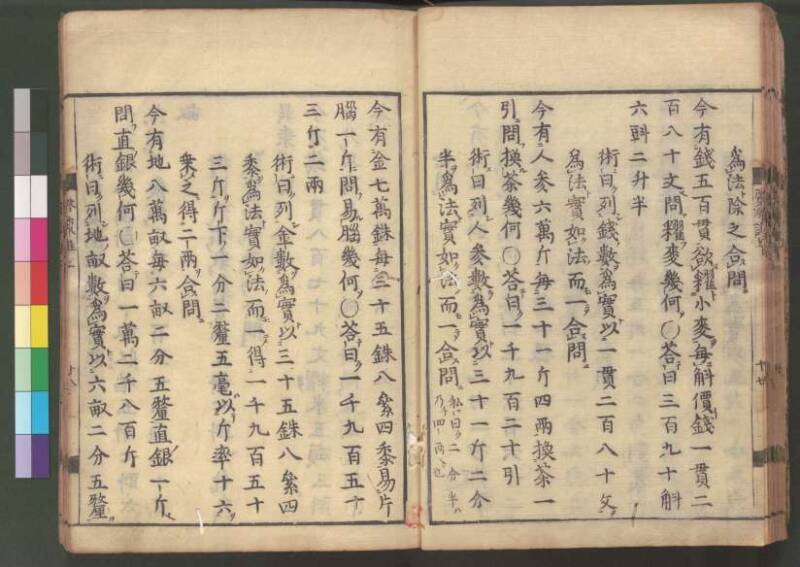 為法除之合問
今有錢五百貫欲糴小麥每斛價錢一貫二
百八十文問糴麥幾何〇荅曰三百九十斛
六㪷二升半
術曰列錢數為實以一貫二百八十文
為法實如法而一合問
今有人參六萬斤每三十一斤四兩換茶一
引問換茶幾何〇荅曰一千九百二十引
術曰列人參數為實以三十一斤二分
半為法實如法而一合問
今有金七萬銖每三十五銖八絫四黍易片
腦一斤問易腦幾何〇荅曰一千九百五十
三斤二兩
術曰列金數為實以三十五銖八絫四
黍為法實如法而一得一千九百五十
三斤斤下一分二釐五毫以斤率十六
乗之得二兩合問
今有地八萬畝每六畝二分五釐直銀一斤
問直銀幾何〇荅曰一萬二千八百斤
術曰列地畝數為實以六畝二分五釐